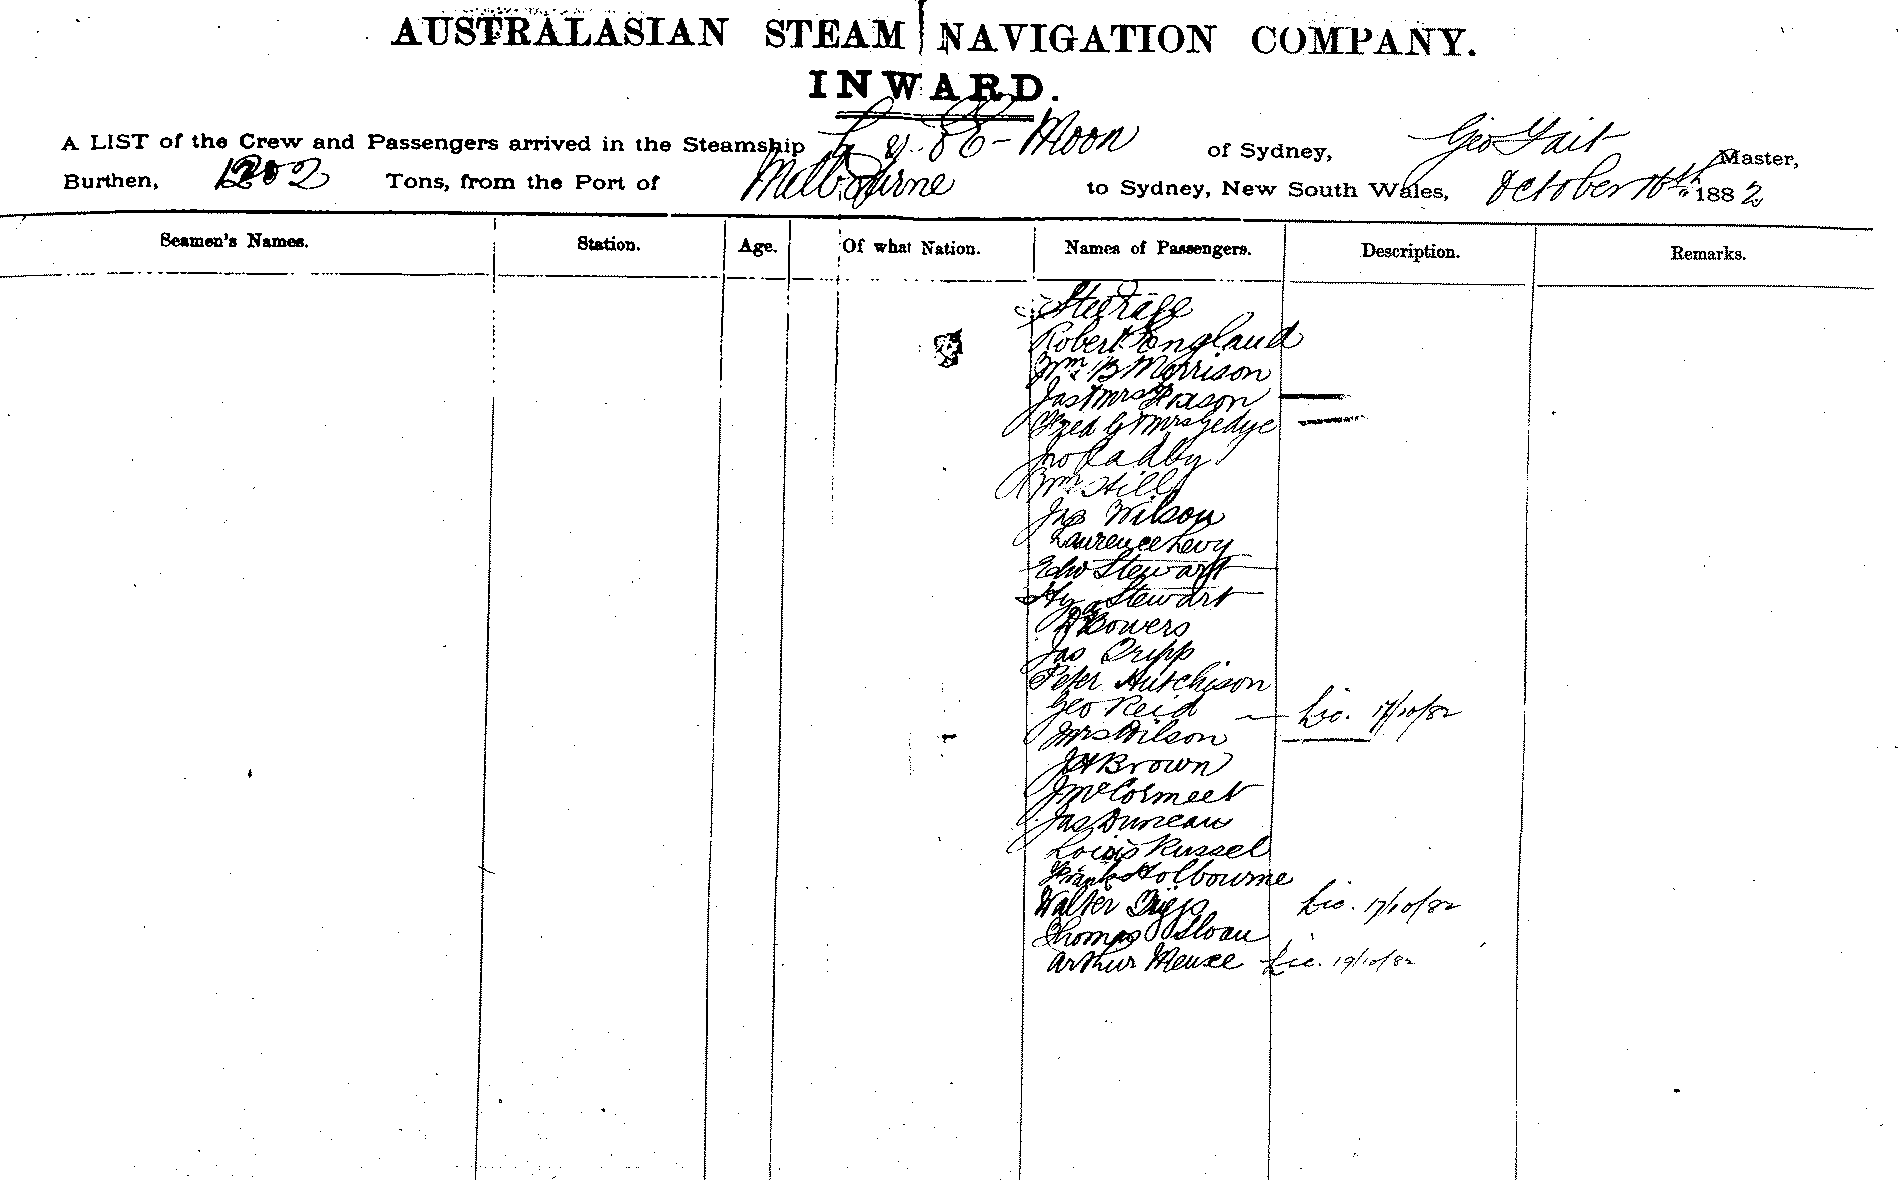 AUSTRALASIAN STEAM NAVIGATION COMPANY.
INWARD.
A LIST of the Crew and Passengers arrived in the Steamship Ly-ee-Moon of Sydney, Geo Tait Master,
Burthen, 1202 Tons, from the Port of Melbourne to Sydney, New South Wales, October 16th 1882
Seamen's Names. Station. Age. Of what Nation. Names of Passengers. Description. Remarks.
Steerage
Robert England
Wm B Morrison
Jas & Mrs
Fred G & Mrs Gedye
Jno Cadby
Wm Hill
Jas Wilson
Laurence Levy
Edw Stewart
Hy Stewart
Bowers
Jas Cripp
Peter Hutchison
Geo Reid Lic. 17/10/82
Mrs Wilson
JH Brown
J McCormeet
Jas Duncan
Louis Russel
Frank Holbourne
Walter Lic. 17/10/82
Thomas Sloan
Arthur Meuse Lic. 19/10/82